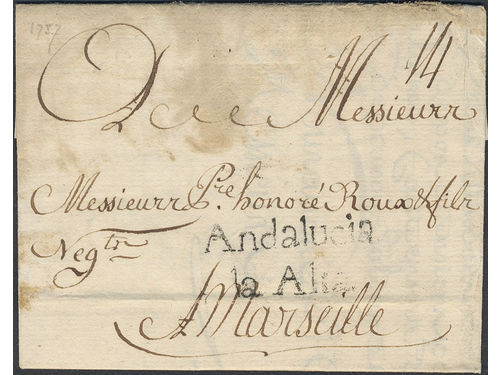 1757
14
A Messieurs
Messieurs Pre honoré Roux & fils
Negts
Andalucia
la Alta
A Marseille